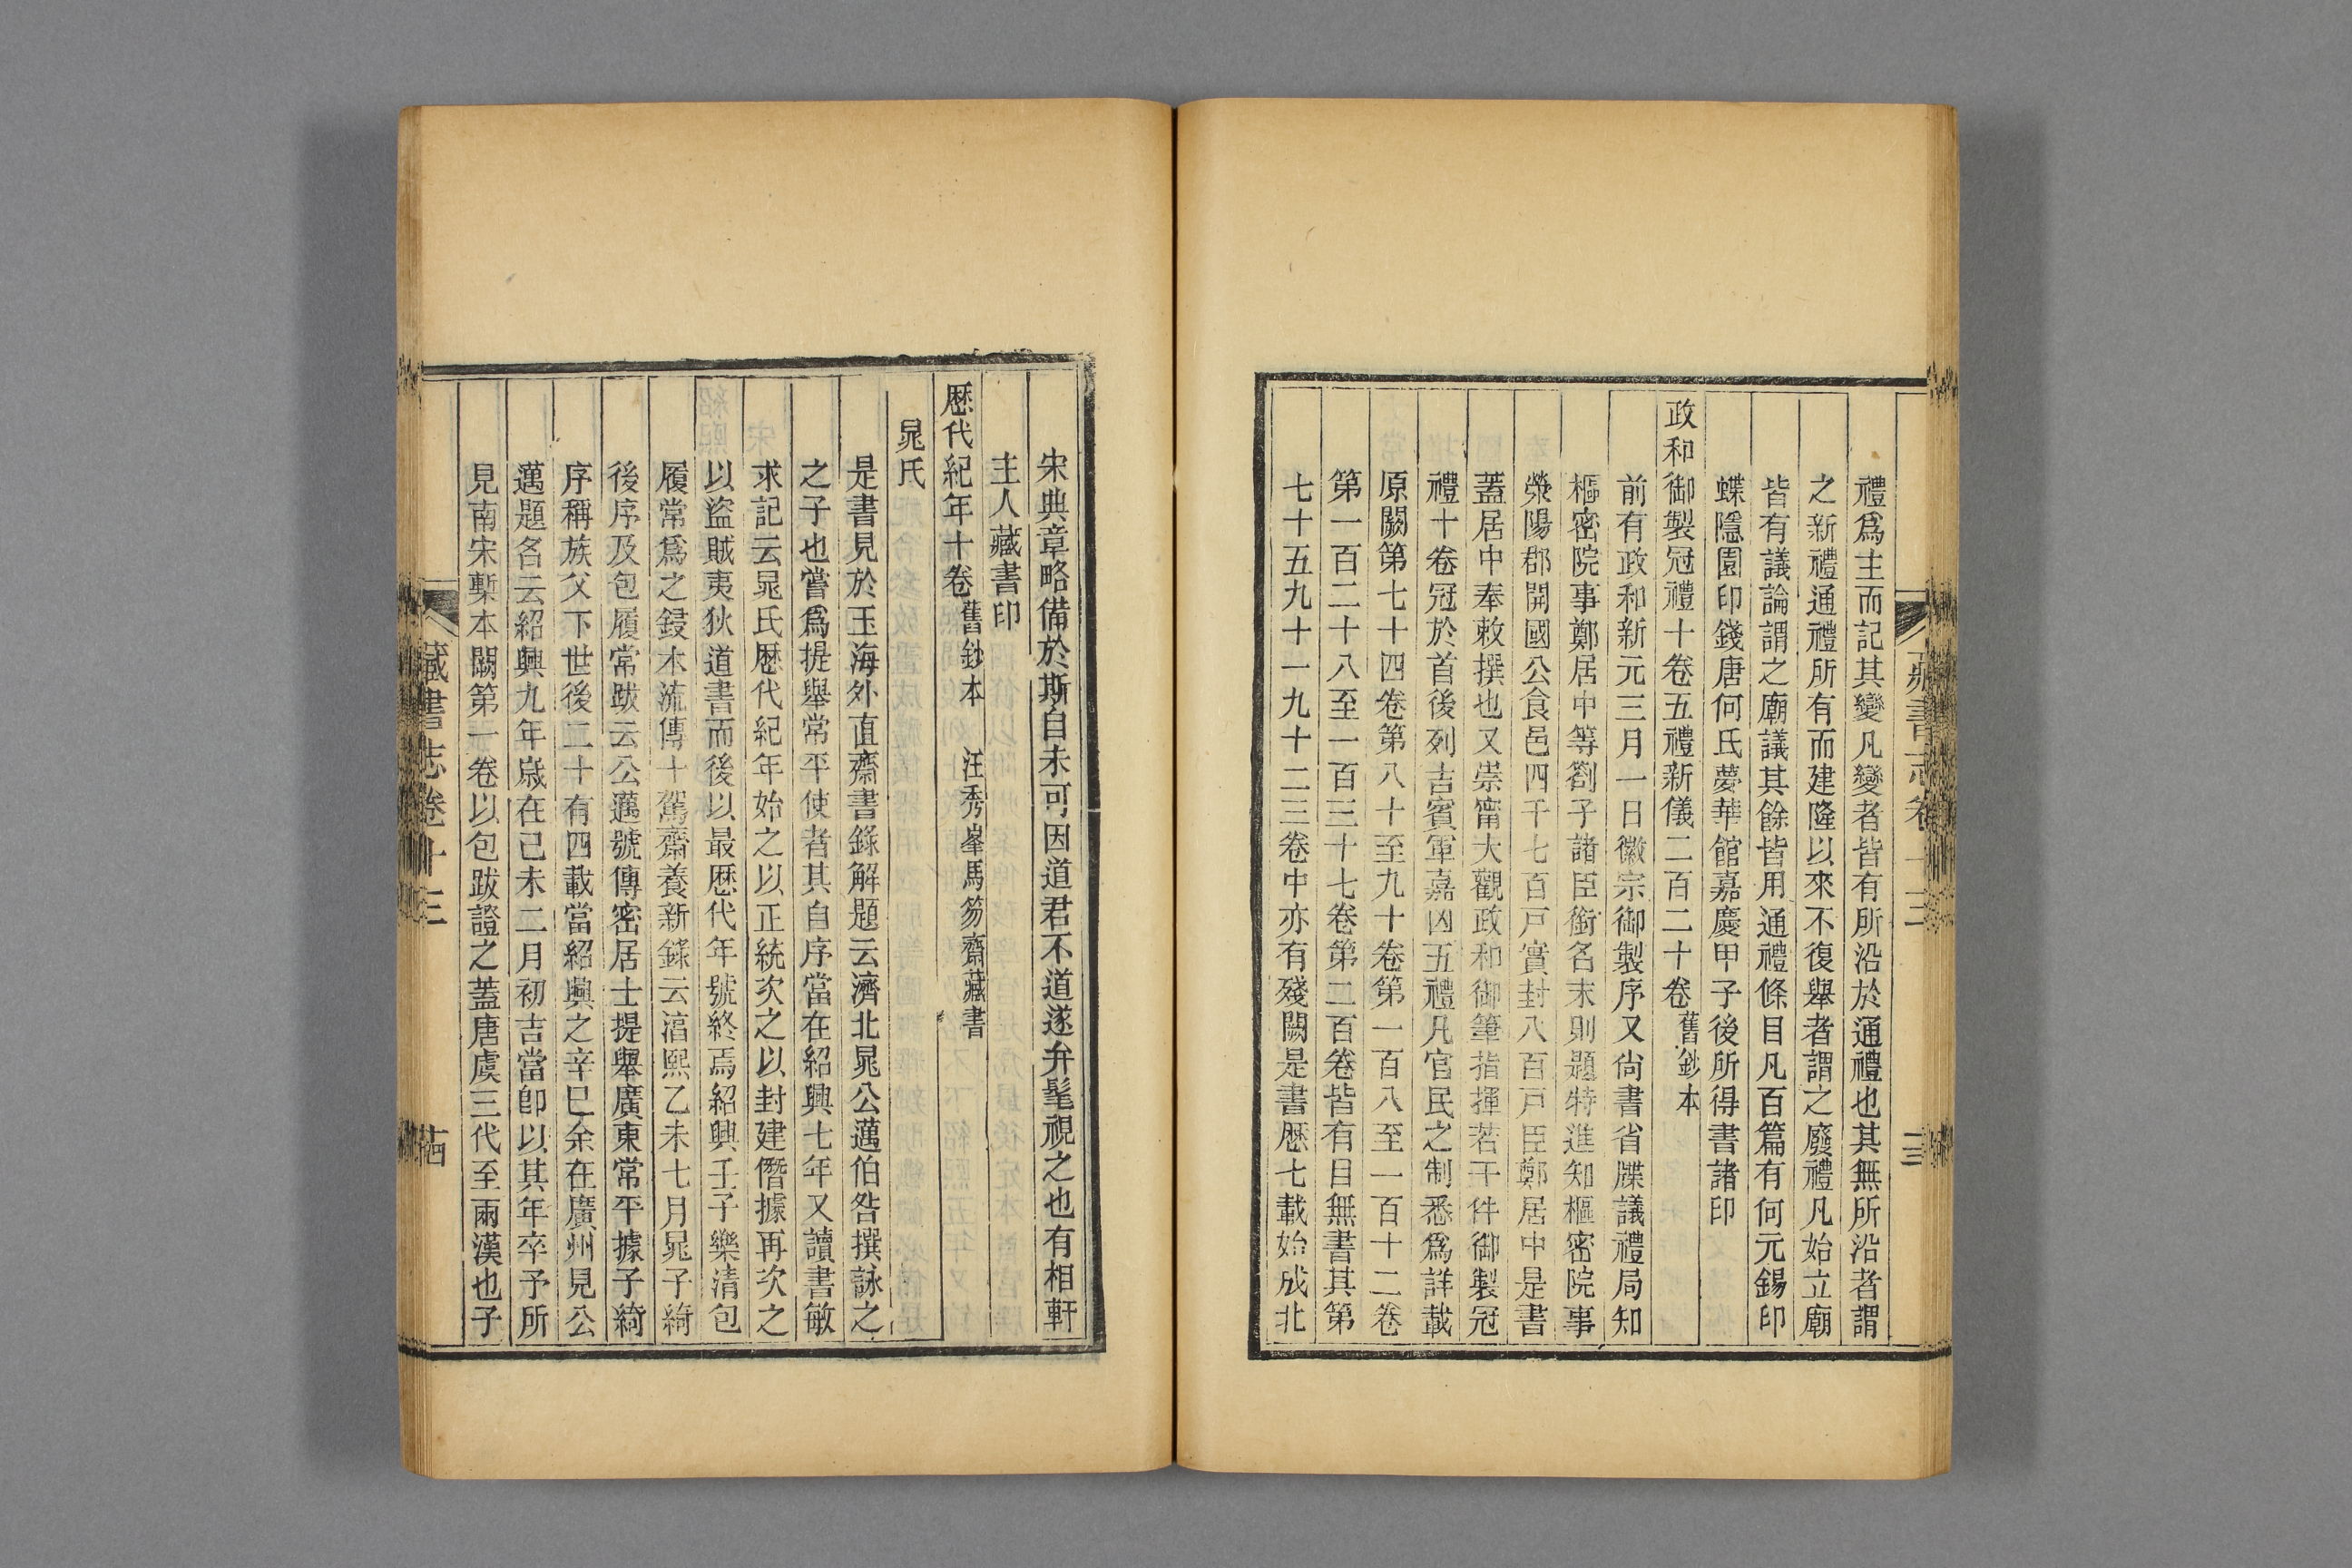 禮爲主而記其變凡變者皆有所沿於通禮也其無所沿者謂
之新禮通禮所有而建隆以來不復舉者謂之廢禮凡始立廟
皆有議論謂之廟議其餘皆用通禮條目凡百篇有何元錫印
蝶隱園印錢唐何氏夢華館嘉慶甲子後所得書諸印
政和御製冠禮十卷五禮新儀二百二十卷舊鈔本
前有政和新元三月一日徽宗御製序又尙書省牒議禮局知
樞密院事鄭居中等劄子諸臣銜名末則題特進知樞密院事
滎陽郡開國公食邑四千七百戸實封八百戸臣鄭居中是書
蓋居中奉敕撰也又崇甯大觀政和御筆指揮若干件御製冠
禮十卷冠於首後列吉賓軍嘉凶五禮凡官民之制悉爲詳載
原闕第七十四卷第八十至九十卷第一百八至一百十二卷
第一百二十八至一百三十七卷第二百卷皆有目無書其第
七十五九十一九十二三卷中亦有殘闕是書歴七載始成北
宋典章略備於斯自未可因道君不道遂弁髦視之也有相軒
主人藏書印
歴代紀年十卷舊鈔本 汪秀峯馬笏齋藏書
晁氏
是書見於玉海外直齋書錄解題云濟北晁公邁伯咎撰詠之
之子也嘗爲提舉常平使者其自序當在紹興七年又讀書敏
求記云晁氏歴代紀年始之以正統次之以封建僭據再次之
以盜賊夷狄道書而後以最歴代年號終焉紹興壬子樂清包
履常爲之鋟木流傳十駕齋養新錄云淳熙乙未七月晁子綺
後序及包履常跋云公邁號傳密居士提舉廣東常平據子綺
序稱族父下世後二十有四載當紹興之辛巳余在廣州見公
邁題名云紹興九年歲在己未二月初吉當卽以其年卒予所
見南宋槧本闕第一卷以包跋證之蓋唐虞三代至兩漢也子
藏書志卷十三